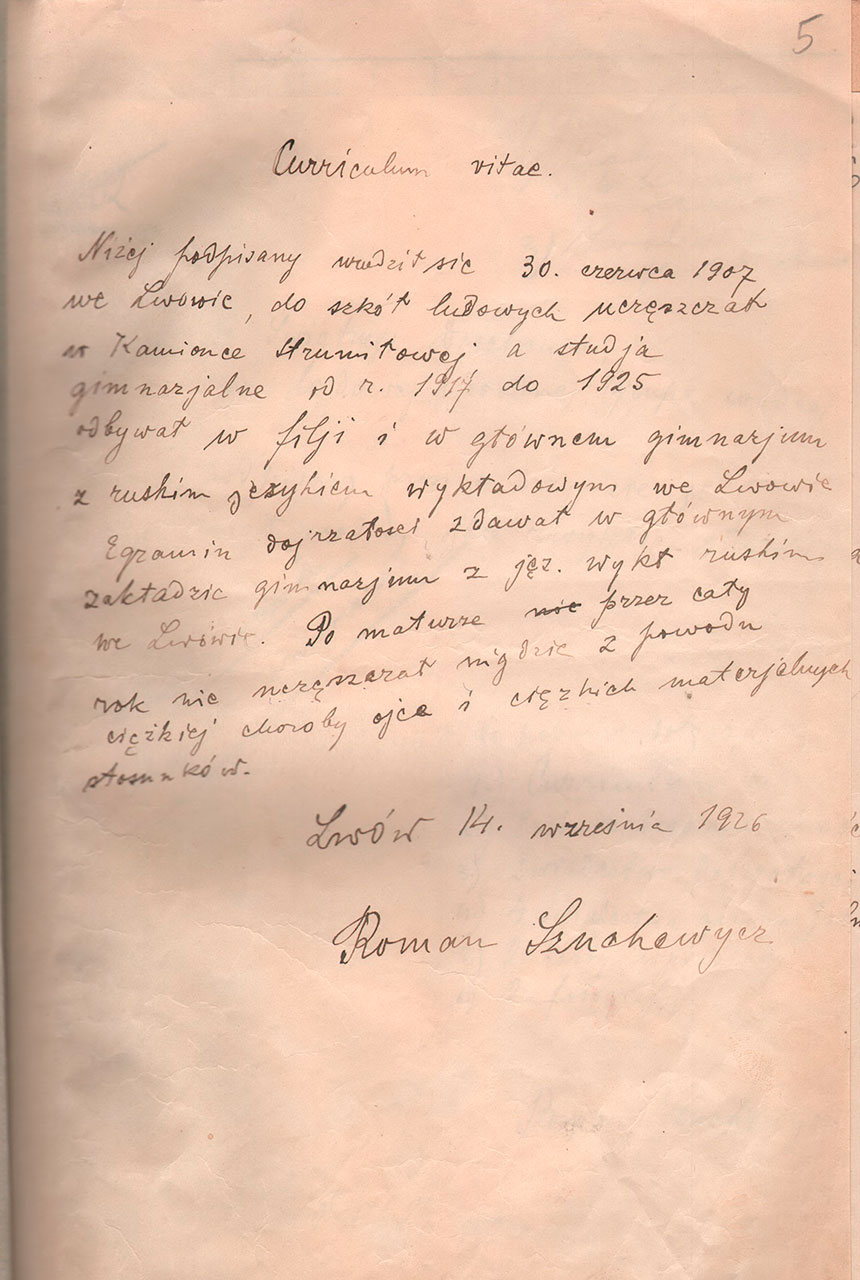 5
Curriculum vitae.
Niżej podpisany urodził się 30. czerwca 1907
we Lwowie, do szkół ludowych uczęszczał
w Kamionce Strumiłowej a studja
gimnazjalne od r. 1917 do 1925
odbywał w filji i w głównem gimnazjum
z ruskim językiem wykładowym we Lwowie
Egzamin dojrzałości zdawał w głównym
zakładzie gimnazjum z jęz. wykł ruskim
we Lwowie. Po maturze nie przez cały
rok nie uczęszczał nigdzie z powodu
ciężkiej choroby ojca i ciężkich materjalnych
stosunków.
Lwów 14. września 1926
Roman Szuchewycz